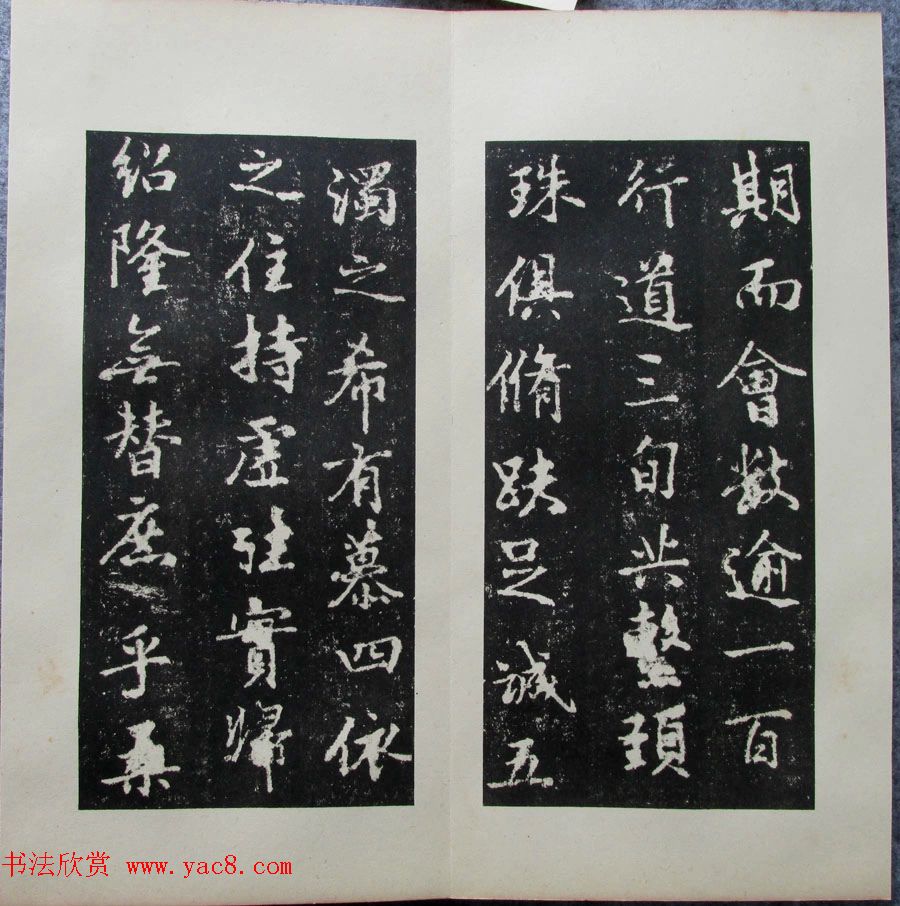 期而會數逾一百
行道三旬共整頸
珠俱脩趺足誠五
濁之希有慕四依
之住持虛往實歸
紹隆無替庶乎桑
书法欣赏 www.yac8.com